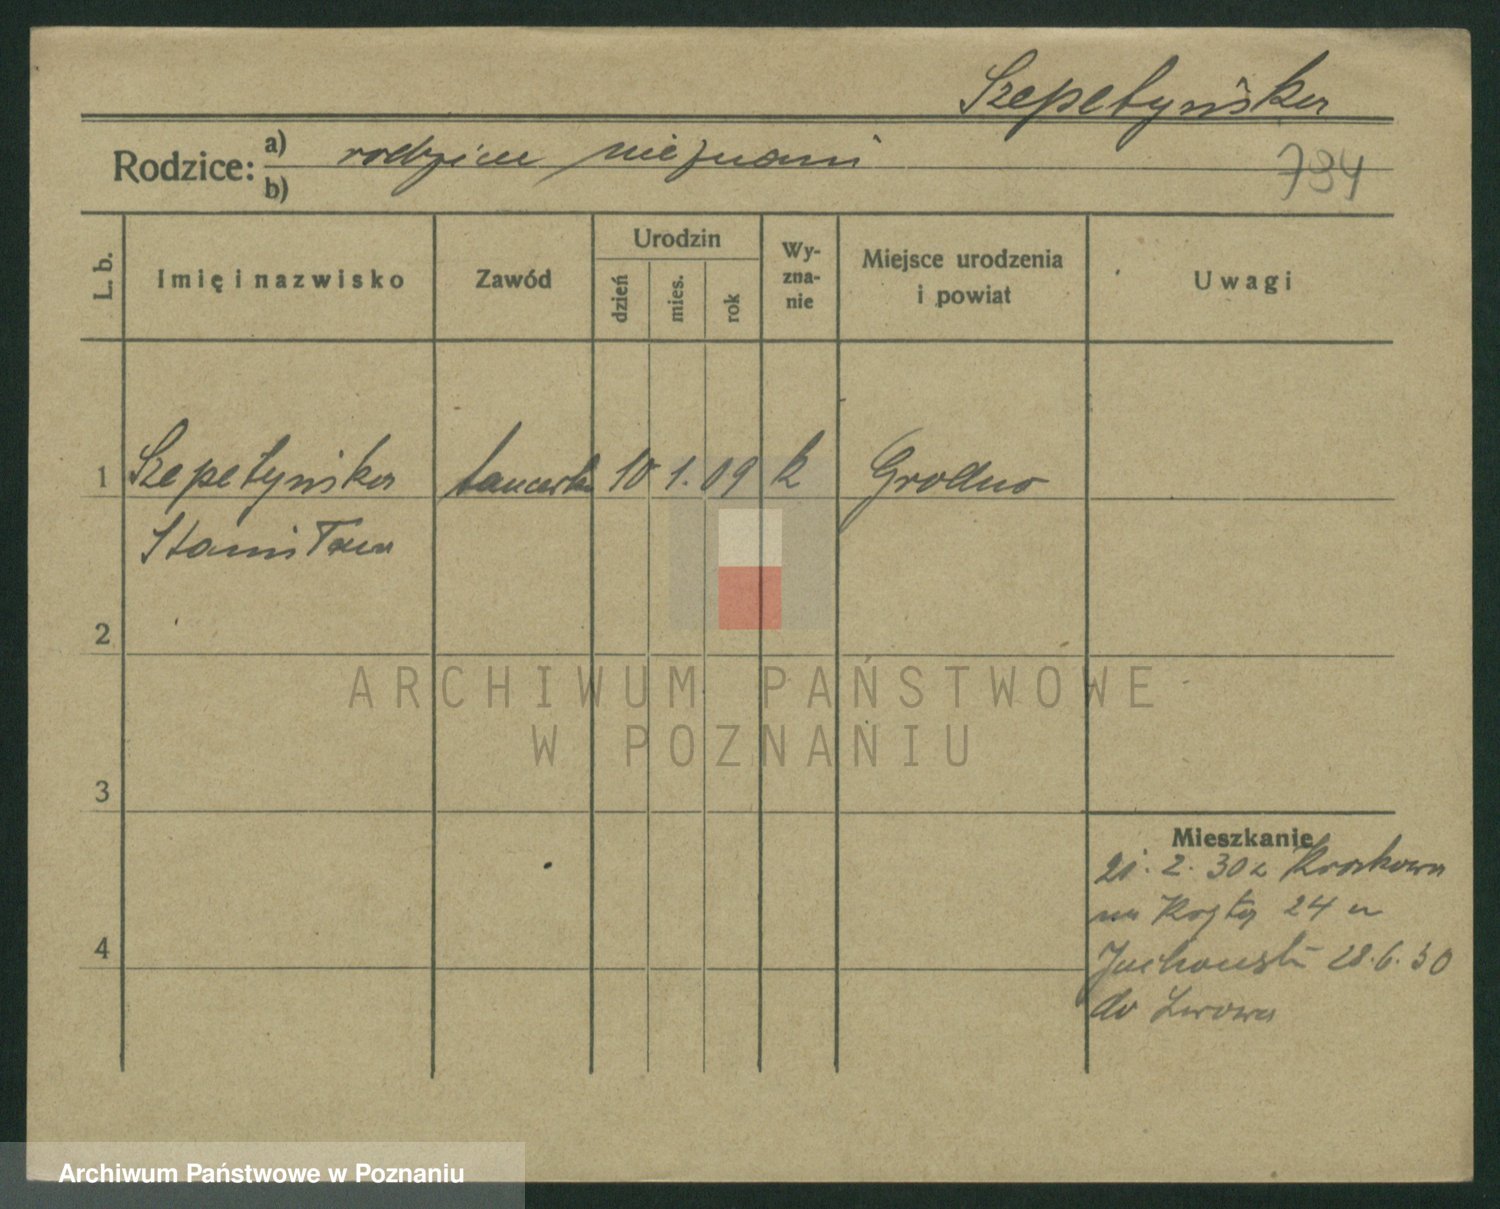 Szepetyńska
Rodzice: a) rodzice nieznani
b)
794
L. b.
Imię i nazwisko
Zawód
Urodzin
dzień
mies.
rok
Wy-
zna-
nie
Miejsce urodzenia
i powiat
Uwagi
1 Szepetyńska tancerka 10 1. 09 k Grodno
Stanisława
2
3
4
Mieszkanie
21. 2. 30 z Krakowa
na 24 u
28.6.30
do Lwowa
ARCHIWUM PAŃSTWOWE
W POZNANIU
Archiwum Państwowe w Poznaniu